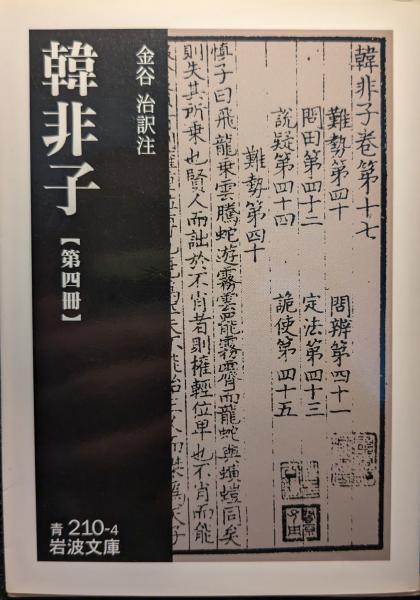 韓非子
【第四冊】
金谷 治訳注
青 210-4
岩波文庫
韓非子巻第十七
難勢第四十
問辨第四十一
問田第四十二
定法第四十三
説疑第四十四
詭使第四十五
難勢第四十
慎子曰飛龍乗雲騰蛇遊霧雲罷霧霽而龍蛇與螾螘同矣
則失其所乗也賢人而詘於不肖者則權輕位卑也不肖而能